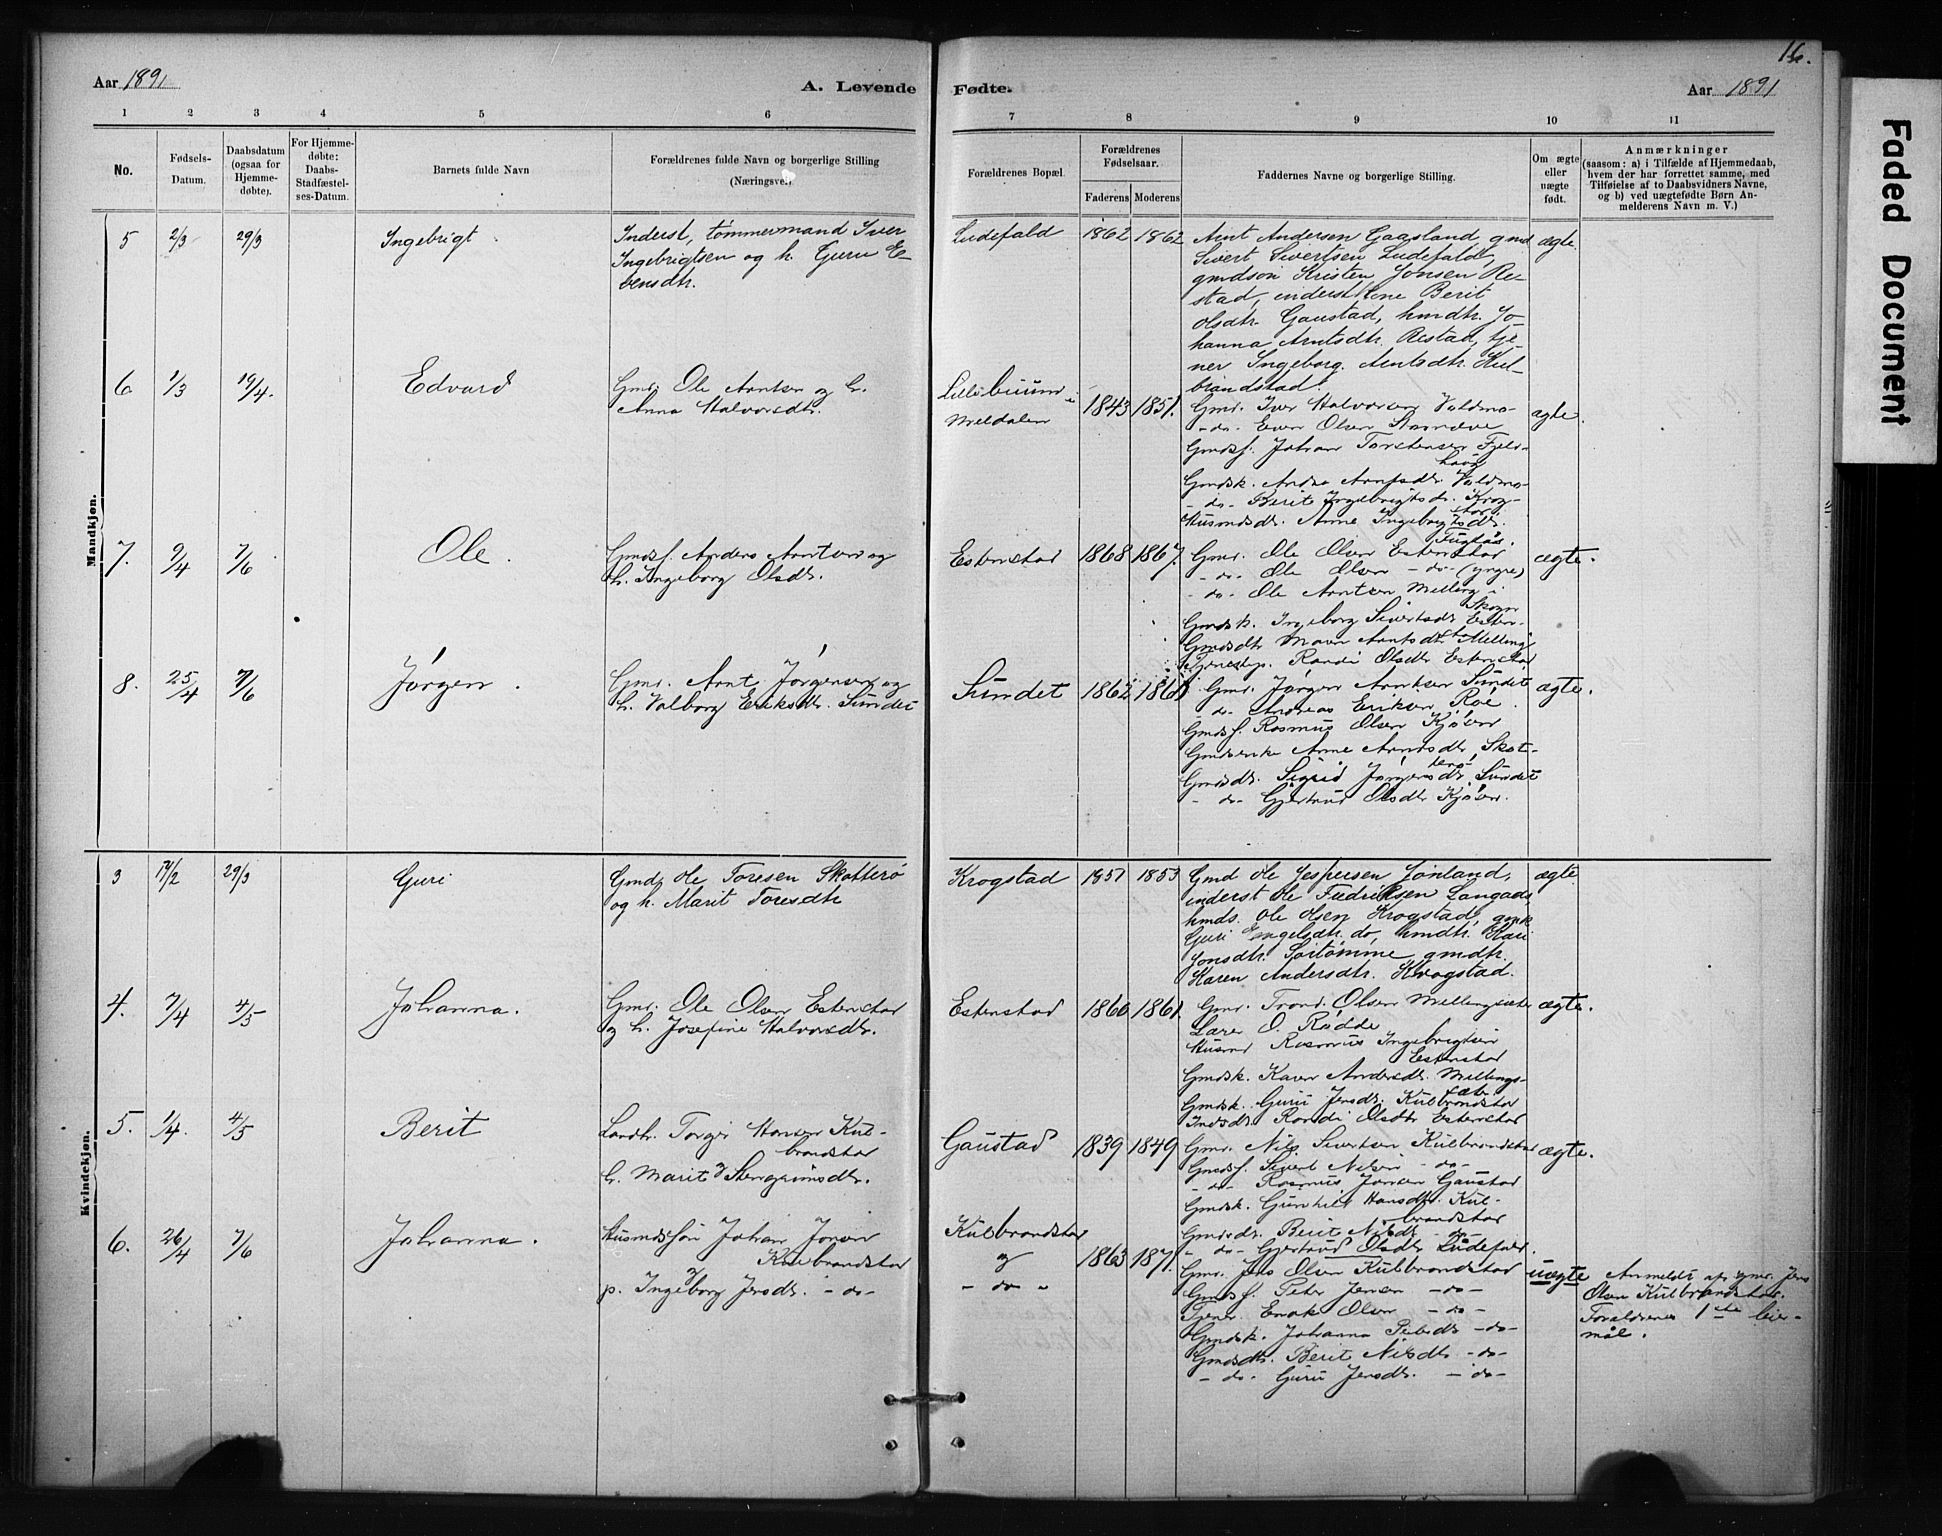 16.
Aar 1891
A. Levende Fødte.
Aar 1891
1 2 3 4 5 6 7 8 9 10 11
No.
Fødsels-Datum.
Daabsdatum (ogsaa for Hjemme-døbte).
For Hjemme-døbte: Daabs-Stadfæstel-ses-Datum.
Barnets fulde Navn
Forældrenes fulde Navn og borgerlige Stilling
(Næringsvei).
Forældrenes Bopæl.
Forældrenes Fødselsaar.
Faderens Moderens
Faddernes Navne og borgerlige Stilling.
Om ægte eller uægte født.
Anmærkninger
(saasom: a) i Tilfælde af Hjemmedaab,
hvem der har forrettet samme, med
Tilføielse af to Daabsvidners Navne,
og b) ved uægtefødte Børn An-
melderens Navn m. V.)
Mandkjøn.
5 2/3 29/3 Ingebrigt
Inderst, tømmermand Iver
Ingebrigtsen og h. Guru E-
bensdtr.
Ludefald 1862 1862
Arnt Andersen Gaasland, gmd
Sivert Sivertsen Ludefald,
gmdsøn Kristen Jonsen Re-
stad, inderst Berit
Olsdtr. Gaustad, hmdtr. Jo-
hanna Arntsdtr. Restad, tje-
ner Ingeborg Arntsdtr. Kul-
brandstad.
ægte
6 1/3 19/4. Edvard
Gmd. Ole Arntsen og h.
Anna Halvorsdtr.
Meldalen 1843 1851.
Gmd. Iver Halvorsen Voldmo
-do- Even Olsen
Gmdsf. Johan Torstensen Fjeld-
haug
Gmdsk. Arntsdtr. Voldmo
-do- Berit Ingebrigtsdr. Krog-
stad
Husmdsdr. Anne Ingebrigtsdr.
Fuglås.
ægte.
7. 9/4 7/6 Ole.
Gmdsf. Anders Arntsen og
h. Ingeborg Olsdr.
Estenstad 1868 1867.
Gmd. Ole Olsen Estenstad
-do- Ole Olsen -do- (yngre)
-do- Ole Arntsen Melling i
Skogn
Gmdsk. Ingeborg Sivertsdr. Esten-
stad
Gmdsdtr. Arntsdtr. Melling
Randi Olsdtr. Estenstad
ægte.
8. 25/4 7/6 Jørgen.
Gmd. Arnt Jørgensen og
h. Valborg Eriksdr. Sundet
Sundet 1862
Gmd. Jørgen Arntsen Sundet
-do- Andreas Eriksen Roe.
Gmdsf. Rasmus Olsen Kjøren
Gmdsenke Anne Arntsdtr. Skot-
terø
Gmdsdr. Sigrid Jørgensdr. Sundet
-do- Gjertrud Olsdtr. Kjøren.
ægte.
Kvindekjøn.
3 17/2 29/3 Guri
Gmd. Ole Toresen Skotterø
og h. Marit Toresdtr
Krogstad 1857 1853
Gmd Ole Jespersen Jønland,
inderst Ole Fredriksen Langaas,
hmds. Ole Olsen Krogstad, gmk
Guri Engelsdtr. do, hmdtr. Kari
Jonsdtr. Sørtømme, gmdtr.
Karen Andersdtr. Krogstad.
ægte.
4. 7/4 4/5 Johanna.
Gmd. Ole Olsen Estenstad
og h. Josefine Halvorsdtr.
Estenstad 1860 1861.
Gmd. Trond Olsen Mellingsæter
Lærer O. Rødde
Husmd Rasmus Ingebrigtsen
Estenstad
Gmdsk. Karen Andersdr. Mellings-
sæter
Gmdsk. Guru Jensdr. Kulbrandstad
Indsdr. Randi Olsdtr Estenstad
ægte.
5. 1/4. 4/5 Berit
Landh. Torger Hansen Kul-
brandstad
h. Marit Stengrimsdtr.
Gaustad 1839 1849
Gmd. Nils Sivertsen Kulbrandstad
Gmdsf. Sivert Nilsen -do-
-do- Rasmus Jonsen Gaustad
Gmdsk. Gunhild Hansdtr. Kul-
brandstad
Gmdsdr. Berit Nilsdtr. -do-
-do- Gjertrud Olsdtr. Ludefald.
ægte.
6. 26/4 7/6 Johanna.
Husmdssøn Johan Jonsen
Kulbrandstad
p. Ingeborg Jensdr. -do-
Kulbrandstad
og
-do- 1863 1871.
Gmd. Jens Olsen Kulbrandstad
Gmdsf. Peter Jensen -do-
Tjener Olsen -do-
Gmdsk. Johanna Pedersdr -do-
Gmdsdtr. Berit Nilsdtr -do-
-do- Guru Jensdr. -do-
uægte
Anmeldt af gmd. Jens
Olsen Kulbrandstad.
Forældrenes 1ste leier-
mål.
Faded Document